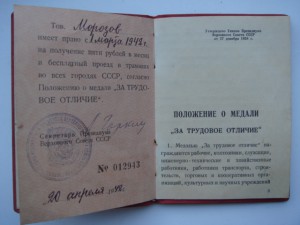 Тов. Морозов
имеет право с 1 марта 1942 г.
на получение пяти рублей в месяц
и бесплатный проезд в трамвае
во всех городах СССР, согласно
Положению о медали „ЗА ТРУДО-
ВОЕ ОТЛИЧИЕ“
Секретарь Президиума
Верховного Совета СССР
№ 012943
20 апреля
Утверждено Указом Президиума
Верховного Совета СССР
от 27 декабря 1938 г.
ПОЛОЖЕНИЕ О МЕДАЛИ
„ЗА ТРУДОВОЕ ОТЛИЧИЕ“
1. Медалью „За трудовое отличие“ на-
граждаются рабочие, колхозники, служащие,
инженерно-технические и хозяйственные
работники, работники транспорта, строи-
тельств, торговых и кооперативных орга-
низаций, культурных и научных учреждений